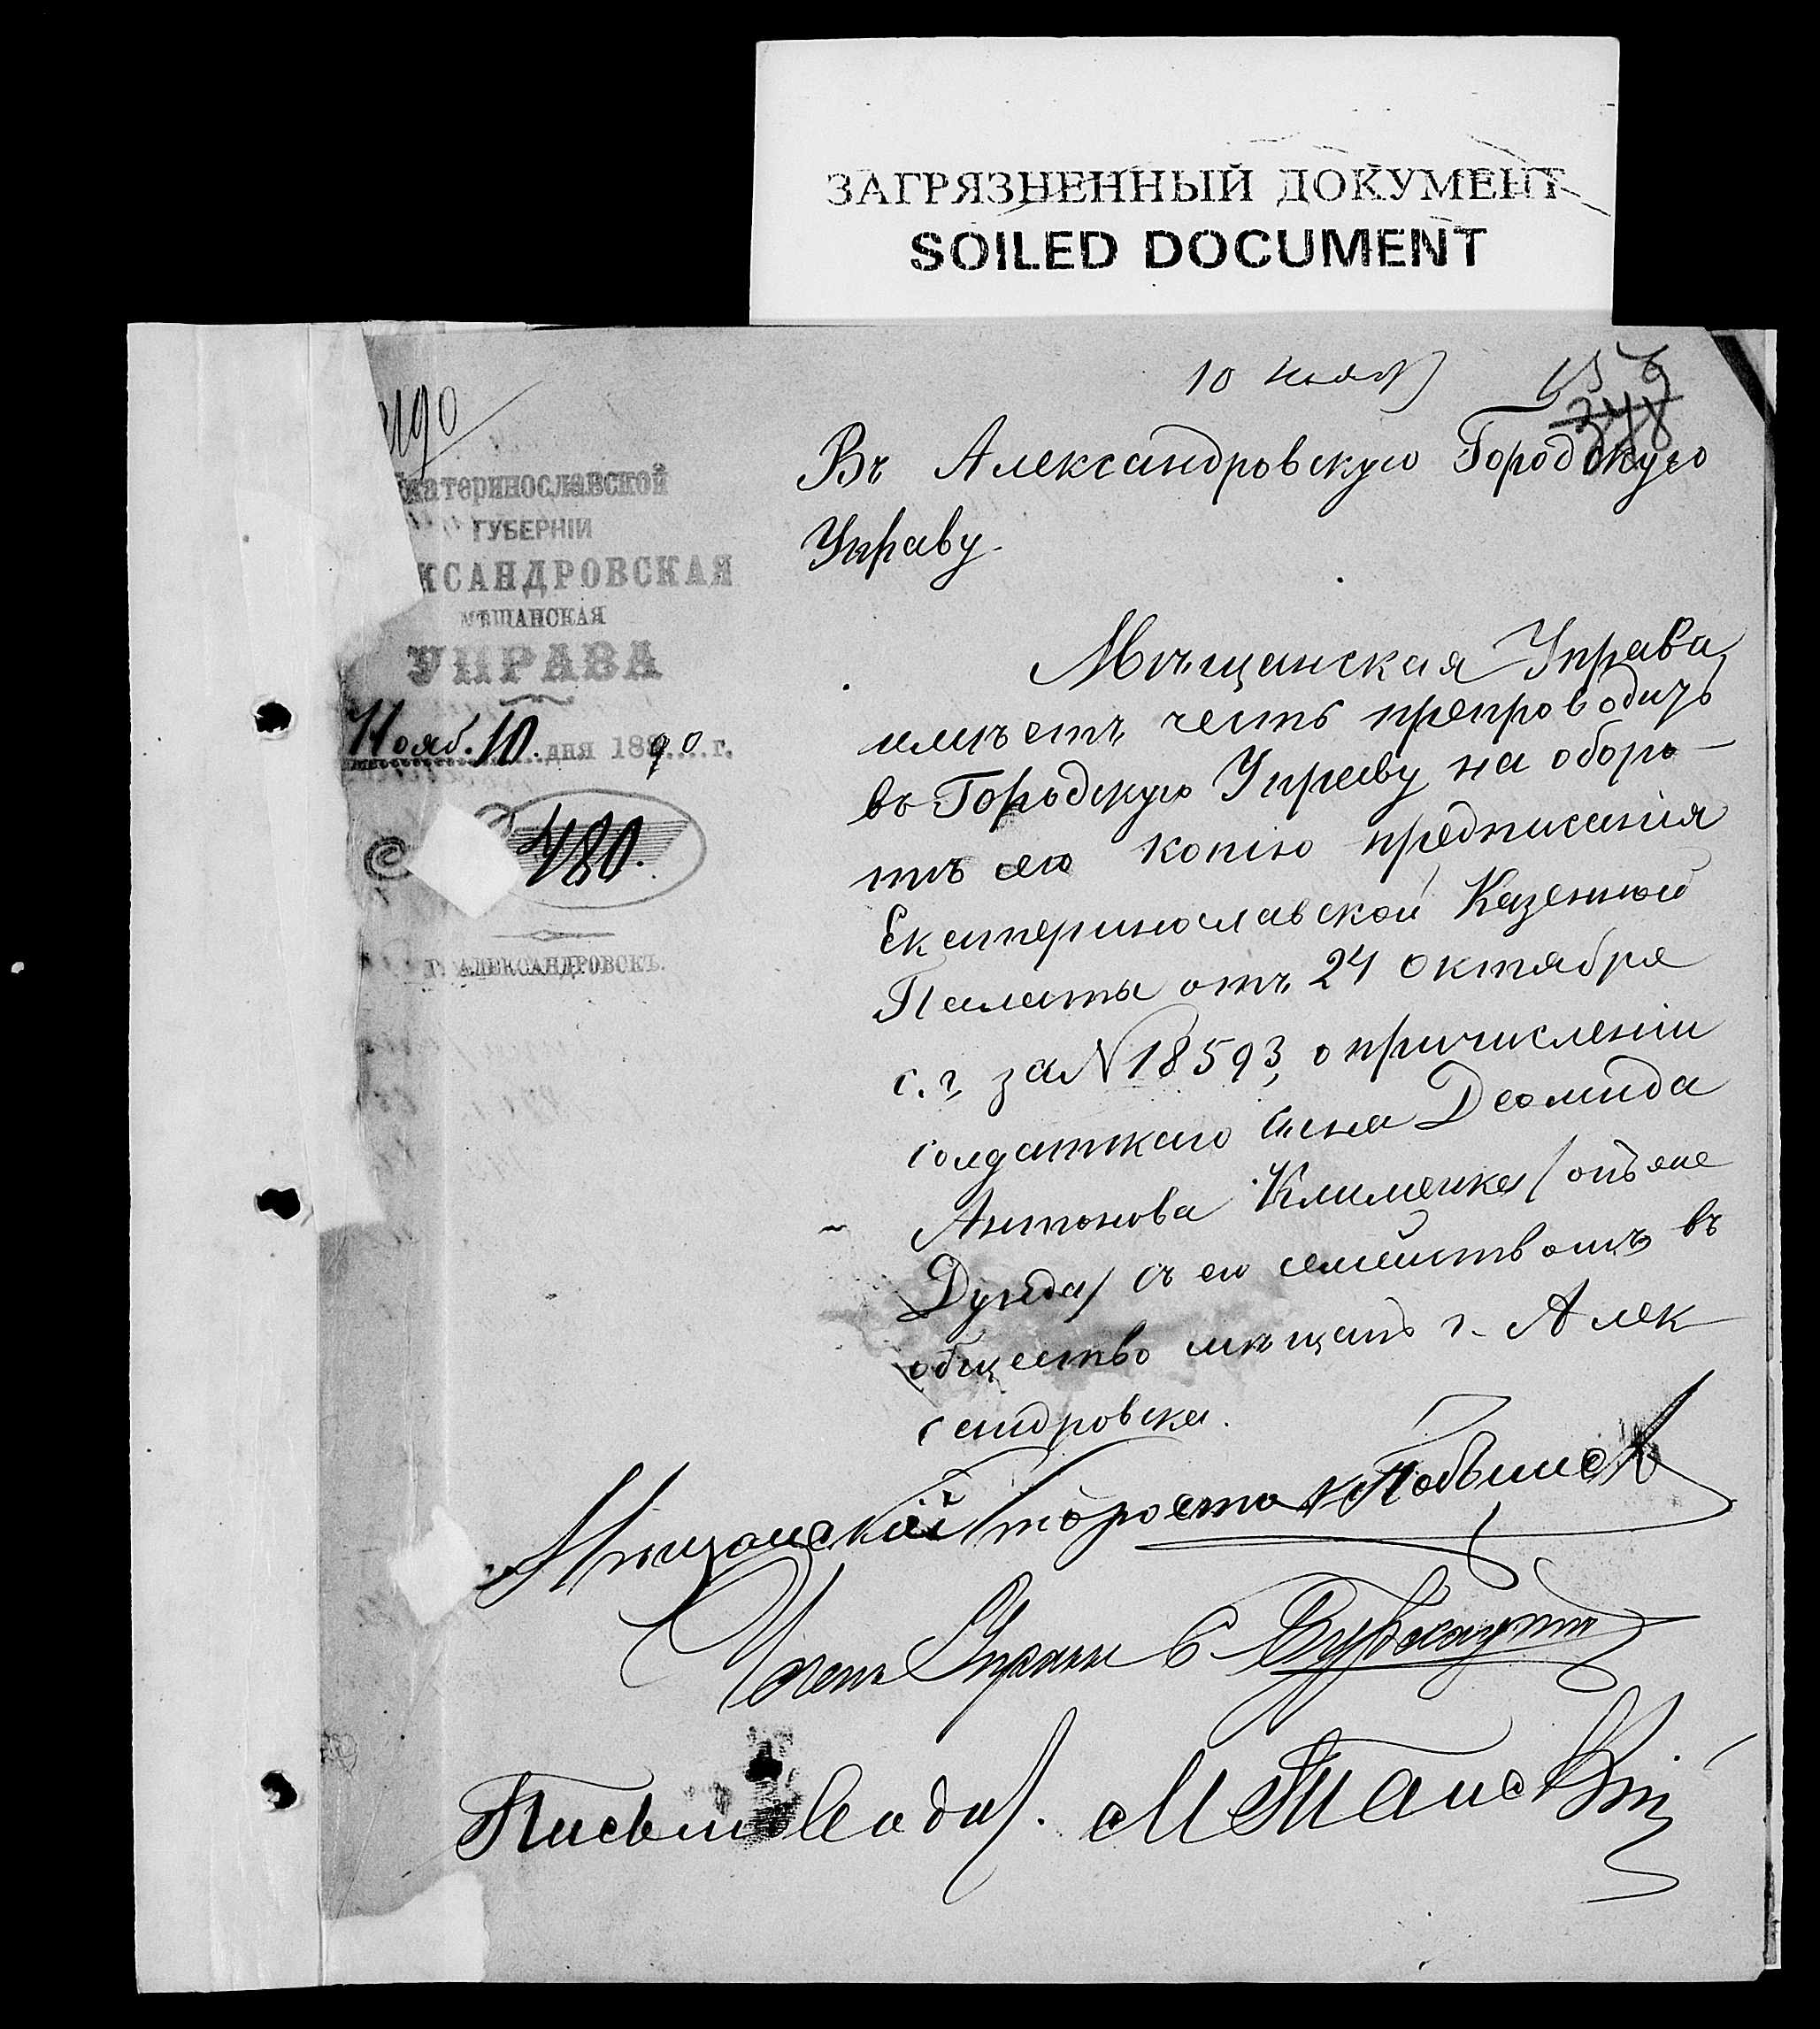 ЗАГРЯЗНЕННЫЙ ДОКУМЕНТ
SOILED DOCUMENT
10 нояб
348
Въ Александровскую Городскую
Управу.
катеринославской
ГУБЕРНІИ
КСАНДРОВСКАЯ
МѢЩАНСКАЯ
УПРАВА
Нояб. 10. дня 1890 г.
480.
Г. АЛЕКСАНДРОВСКЪ.
Мѣщанская Управа
имѣетъ честь препроводить
въ Городскую Управу на оборо-
тѣ сего копію предписанія
Екатеринославской Казенной
Палаты отъ 24 Октября
с. г. за N 18593, о причисленіи
солдатскаго сына Деомида
Антонова Клименка / онъ же
Дунда / съ его семействомъ въ
общество мѣщанъ г. Алек
сандровска.
Мѣщанскій Староста
Членъ Управы
Письмоводи. М Танскій